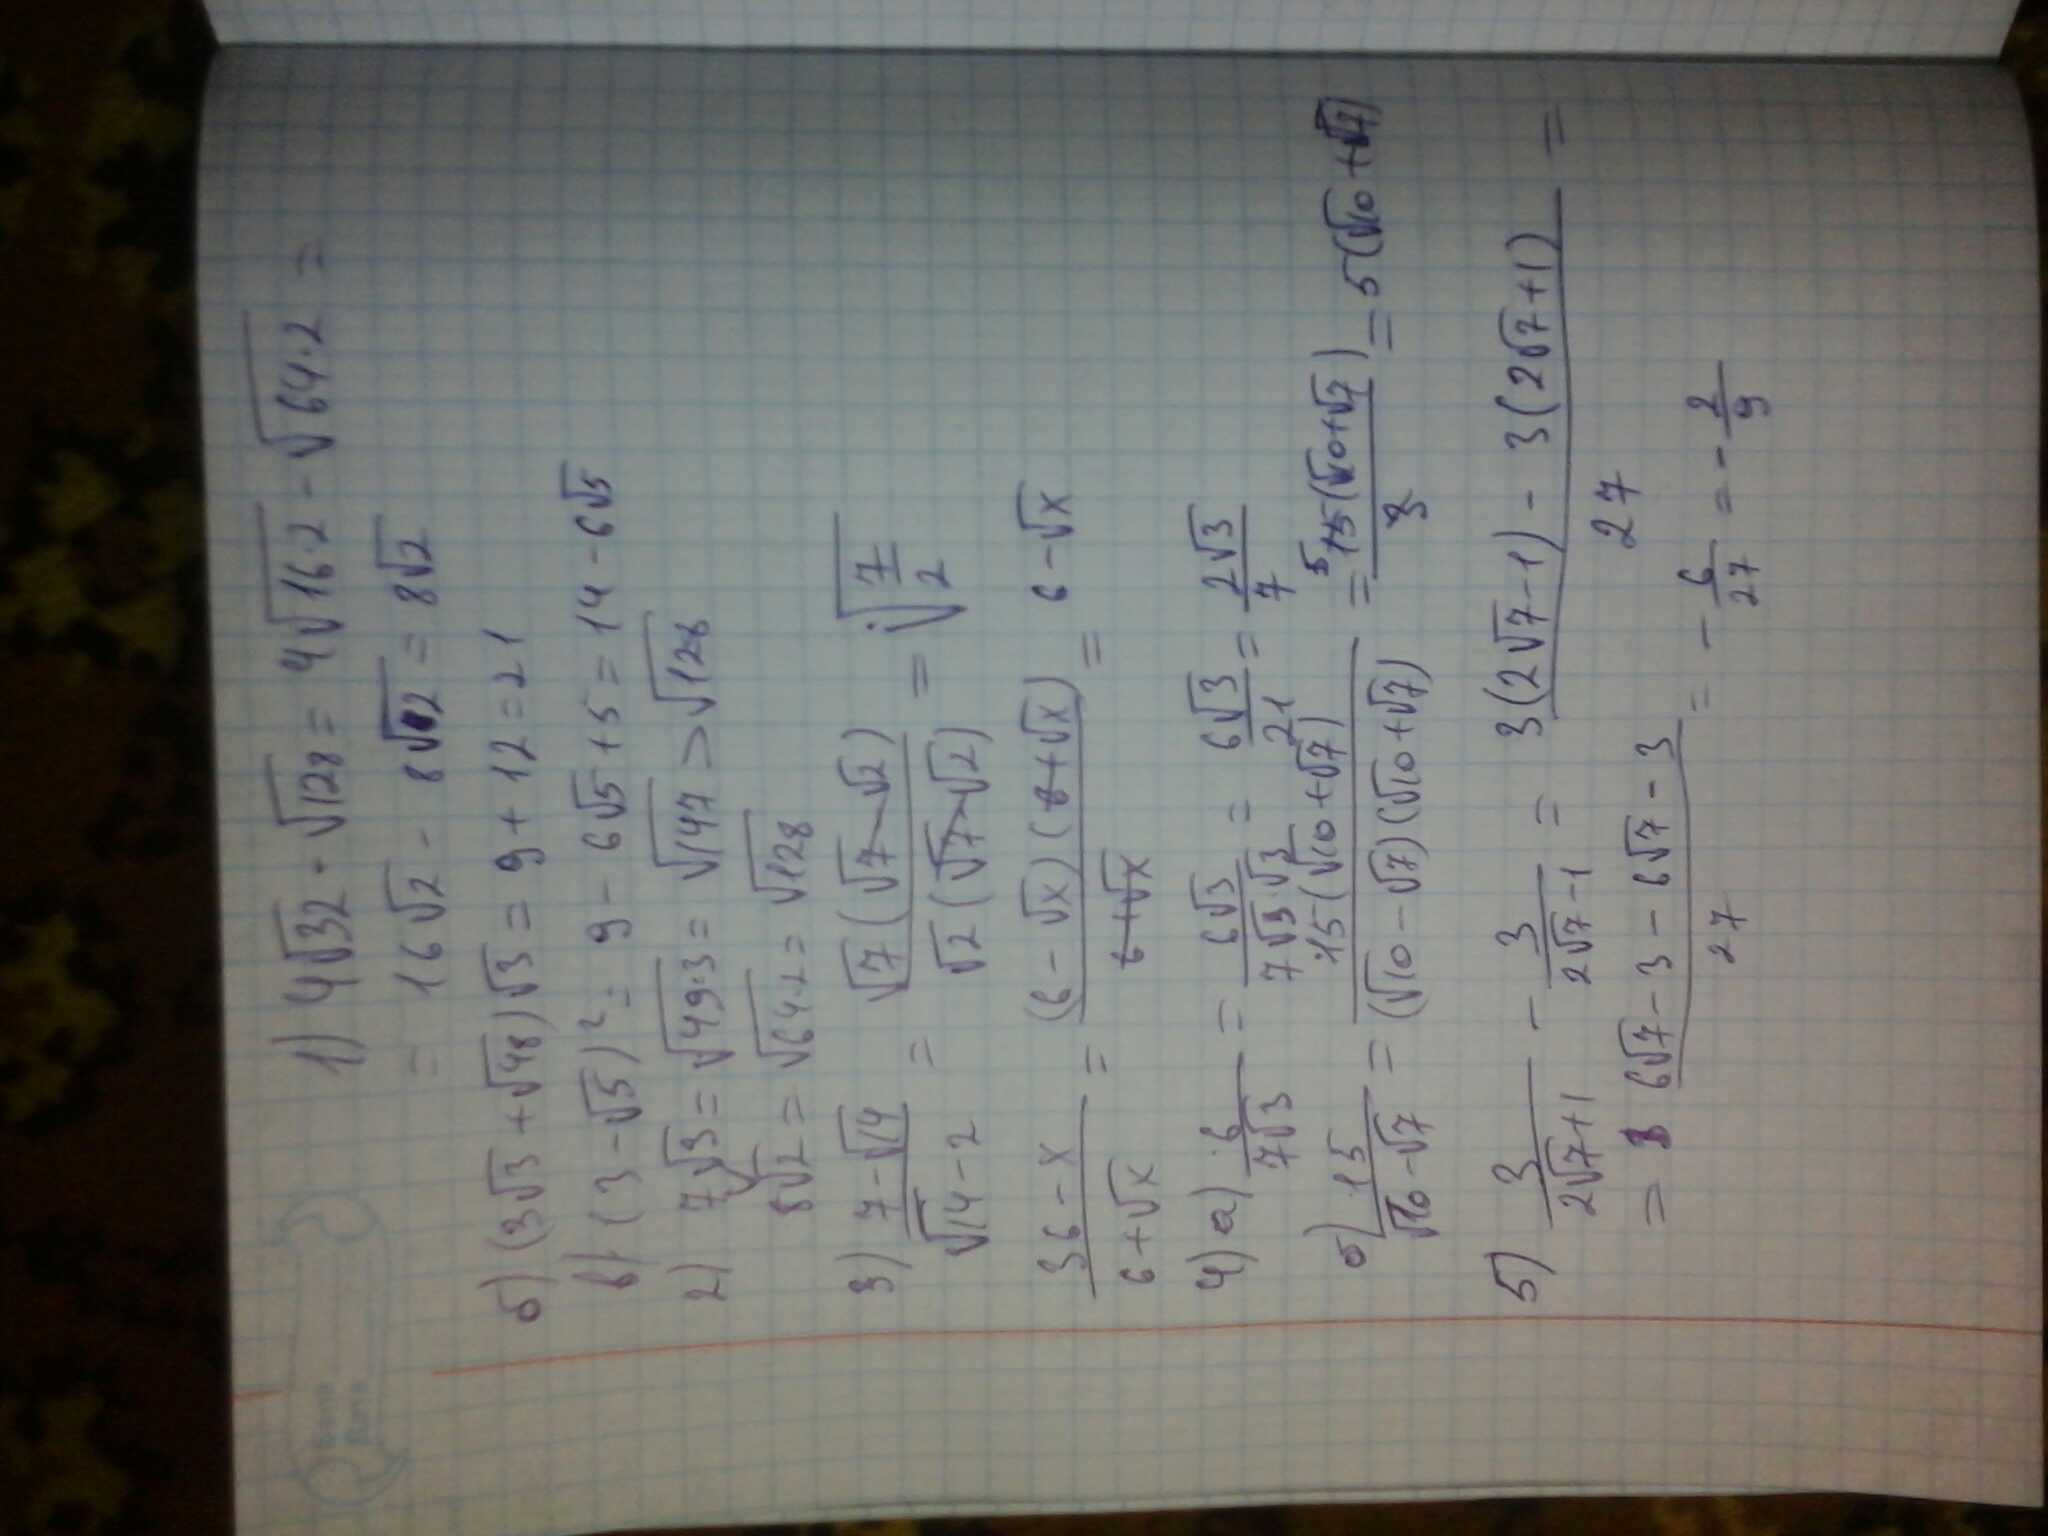 1) 4√32 - √128 = 4√16·2 - √64·2 =
= 16√2 - 8√2 = 8√2
б) (3√3 + √48)√3 = 9 + 12 = 21
в) (3 - √5)² = 9 - 6√5 + 5 = 14 - 6√5
2) 7√3 = √49·3 = √147 > √128
8√2 = √64·2 = √128
3) (7 - √14)/(√14 - 2) = √7(√7 - √2)/√2(√7 - √2) = √(7/2)
(36 - x)/(6 + √x) = (6 - √x)(6 + √x)/(6 + √x) = 6 - √x
4) а) 6/7√3 = 6√3/7√3·√3 = 6√3/21 = 2√3/7
б) 15/(√10 - √7) = 15(√10 + √7)/(√10 - √7)(√10 + √7) = 5 15(√10 + √7)/3 = 5(√10 + √7)
5) 3/(2√7 + 1) - 3/(2√7 - 1) = (3(2√7 - 1) - 3(2√7 + 1))/27 =
= (6√7 - 3 - 6√7 - 3)/27 = - 6/27 = - 2/9